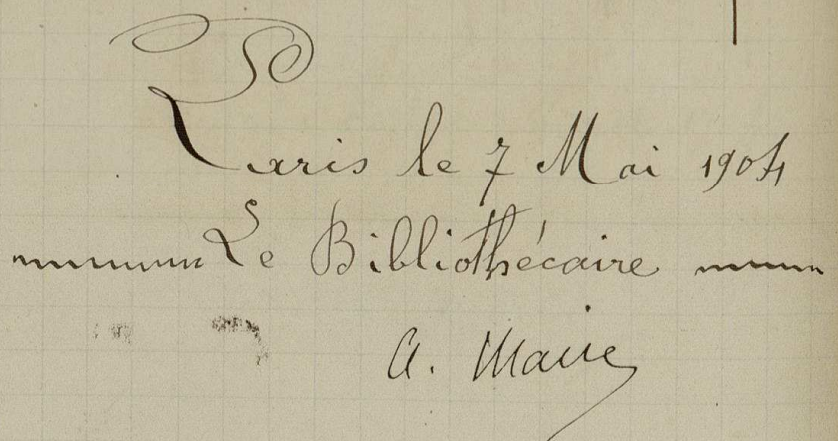 Paris le 7 Mai 1904
Le Bibliothécaire
A. Maire